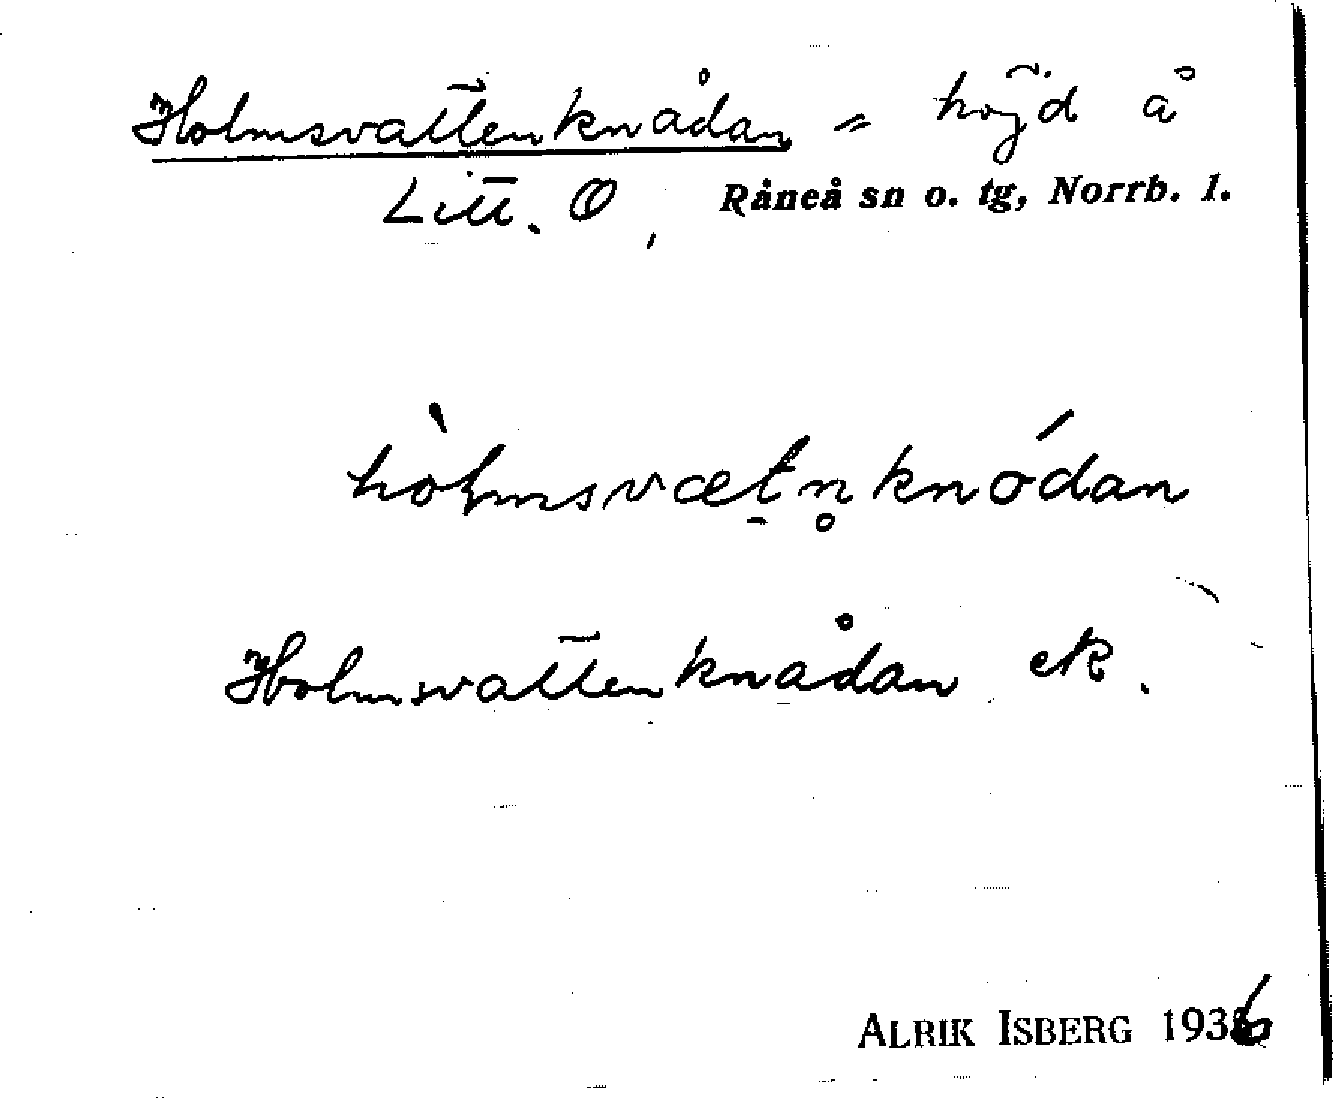 Holmsvattenknådan = höjd å
Litt. O, Råneå sn o. tg, Norrb. l.
hòlmsvætn̥knódan
Holmsvattenknådan ek.
ALRIK ISBERG 1936